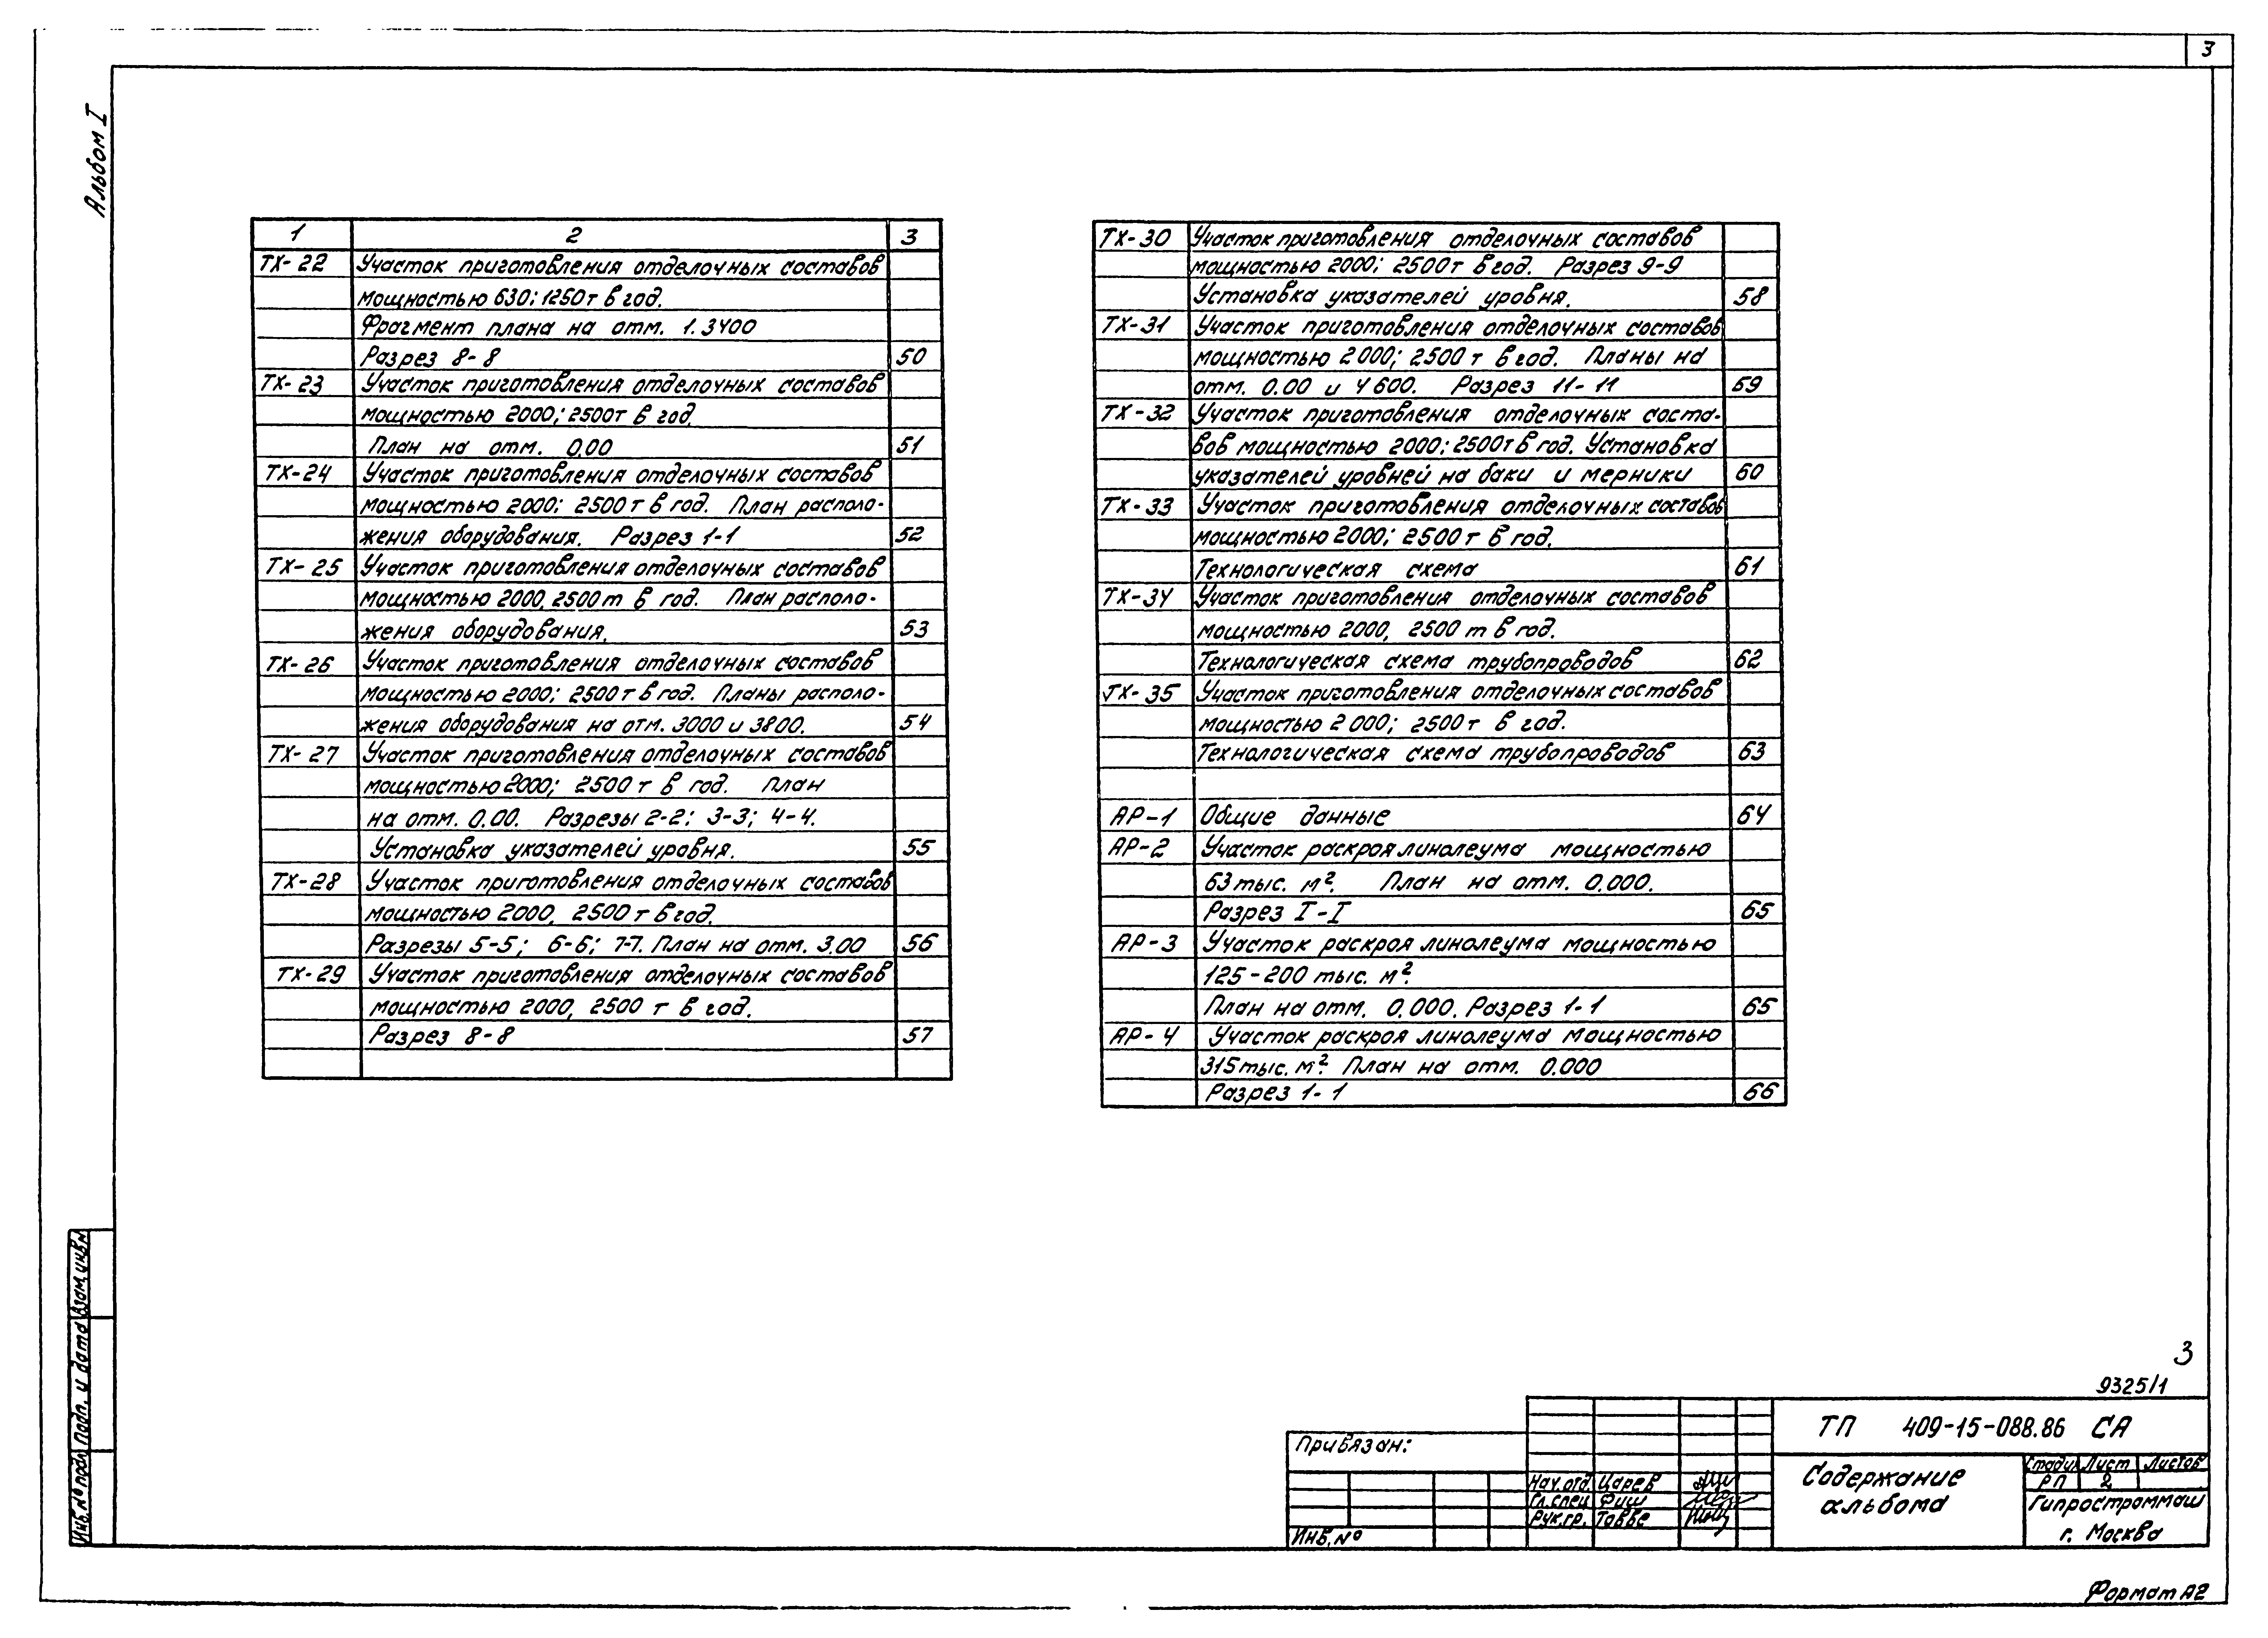 3
Альбом I
1 2 3
ТХ-22 Участок приготовления отделочных составов
мощностью 630; 1250т в год.
Фрагмент плана на отм. 1.3400
Разрез 8-8 50
ТХ-23 Участок приготовления отделочных составов
мощностью 2000; 2500т в год.
План на отм. 0.00 51
ТХ-24 Участок приготовления отделочных составов
мощностью 2000; 2500т в год. План располо-
жения оборудования. Разрез 1-1 52
ТХ-25 Участок приготовления отделочных составов
мощностью 2000, 2500т в год. План располо-
жения оборудования. 53
ТХ-26 Участок приготовления отделочных составов
мощностью 2000; 2500т в год. Планы располо-
жения оборудования на отм. 3000 и 3800. 54
ТХ-27 Участок приготовления отделочных составов
мощностью 2000; 2500т в год. План
на отм. 0.00. Разрезы 2-2; 3-3; 4-4.
Установка указателей уровня. 55
ТХ-28 Участок приготовления отделочных составов
мощностью 2000, 2500т в год.
Разрезы 5-5; 6-6; 7-7. План на отм. 3.00 56
ТХ-29 Участок приготовления отделочных составов
мощностью 2000, 2500 т в год.
Разрез 8-8 57
ТХ-30 Участок приготовления отделочных составов
мощностью 2000; 2500т в год. Разрез 9-9
Установка указателей уровня. 58
ТХ-31 Участок приготовления отделочных составов
мощностью 2000; 2500т в год. Планы на
отм. 0.00 и 4600. Разрез 11-11 59
ТХ-32 Участок приготовления отделочных соста-
вов мощностью 2000; 2500т в год. Установка
указателей уровней на баки и мерники 60
ТХ-33 Участок приготовления отделочных составов
мощностью 2000; 2500т в год.
Технологическая схема 61
ТХ-34 Участок приготовления отделочных составов
мощностью 2000, 2500 т в год.
Технологическая схема трубопроводов 62
ТХ-35 Участок приготовления отделочных составов
мощностью 2000; 2500т в год.
Технологическая схема трубопроводов 63
АР-1 Общие данные 64
АР-2 Участок раскроя линолеума мощностью
63 тыс. м². План на отм. 0.000.
Разрез I-I 65
АР-3 Участок раскроя линолеума мощностью
125-200 тыс. м².
План на отм. 0.000. Разрез 1-1 65
АР-4 Участок раскроя линолеума мощностью
315 тыс. м². План на отм. 0.000
Разрез 1-1 66
Взам.инв.№
Подп. и дата
Инв.№ подл.
3
9325/1
Привязан:
Инв.№
Нач.отд. Царев
Гл.спец. Фиш
Рук.гр. Товве
ТП 409-15-088.86 СА
Содержание
альбома
Стадия Лист Листов
РП 2
Гипростроммаш
г. Москва
Формат А2